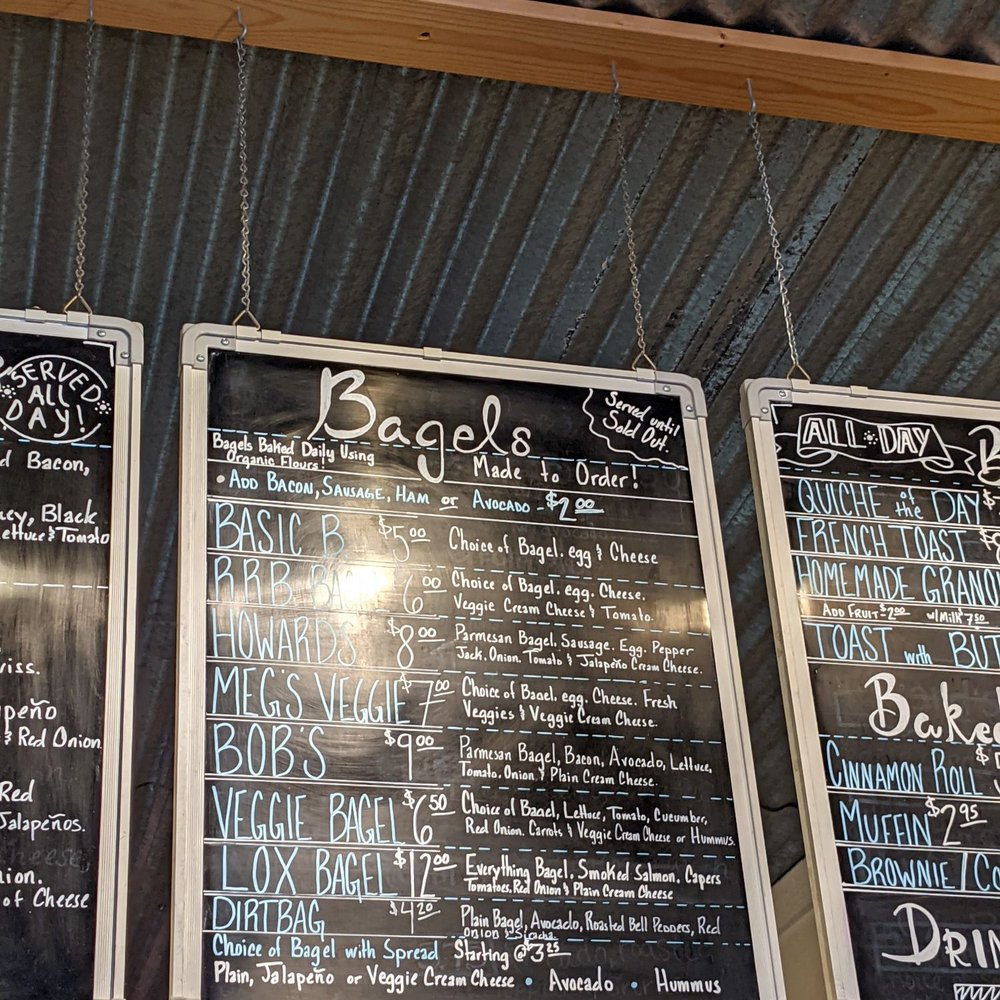 SERVED
ALL
DAY!
Bacon,
Black
Lettuce & Tomato
& Red Onion
Red
Jalapeños.
of Cheese
Bagels
Served until
Sold Out.
Bagels Baked Daily Using
Organic Flours!
Made to Order!
• ADD BACON, SAUSAGE, HAM or AVOCADO - $2.00
BASIC B $5.00 Choice of Bagel. egg & Cheese
RRB $6.00 Choice of Bagel. egg. Cheese,
Veggie Cream Cheese & Tomato.
HOWARDS $8.00 Parmesan Bagel. Sausage. Egg. Pepper
Jack. Onion. Tomato & Jalapeño Cream Cheese.
MEG'S VEGGIE $7.00 Choice of Bagel. egg. Cheese. Fresh
Veggies & Veggie Cream Cheese.
BOB'S $9.00 Parmesan Bagel, Bacon, Avocado, Lettuce,
Tomato, Onion & Plain Cream Cheese.
VEGGIE BAGEL $6.50 Choice of Bagel, Lettuce, Tomato, Cucumber,
Red Onion. Carrots & Veggie Cream Cheese or Hummus.
LOX BAGEL $12.00 Everything Bagel. Smoked Salmon. Capers
Tomatoes. Red Onion & Plain Cream Cheese
DIRTBAG $4.20 Plain Bagel, Avocado, Roasted Bell Peppers, Red
Onion & Sriracha.
Choice of Bagel with Spread Starting @ $3.25
Plain, Jalapeño or Veggie Cream Cheese • Avocado • Hummus
ALL DAY B
QUICHE of the DAY $
FRENCH TOAST $
HOMEMADE GRANO
ADD FRUIT - $2.00 w/ Milk 7.50
TOAST with BUT
Bake
CINNAMON ROLL $
MUFFIN $2.95
BROWNIE/CO
DRIN